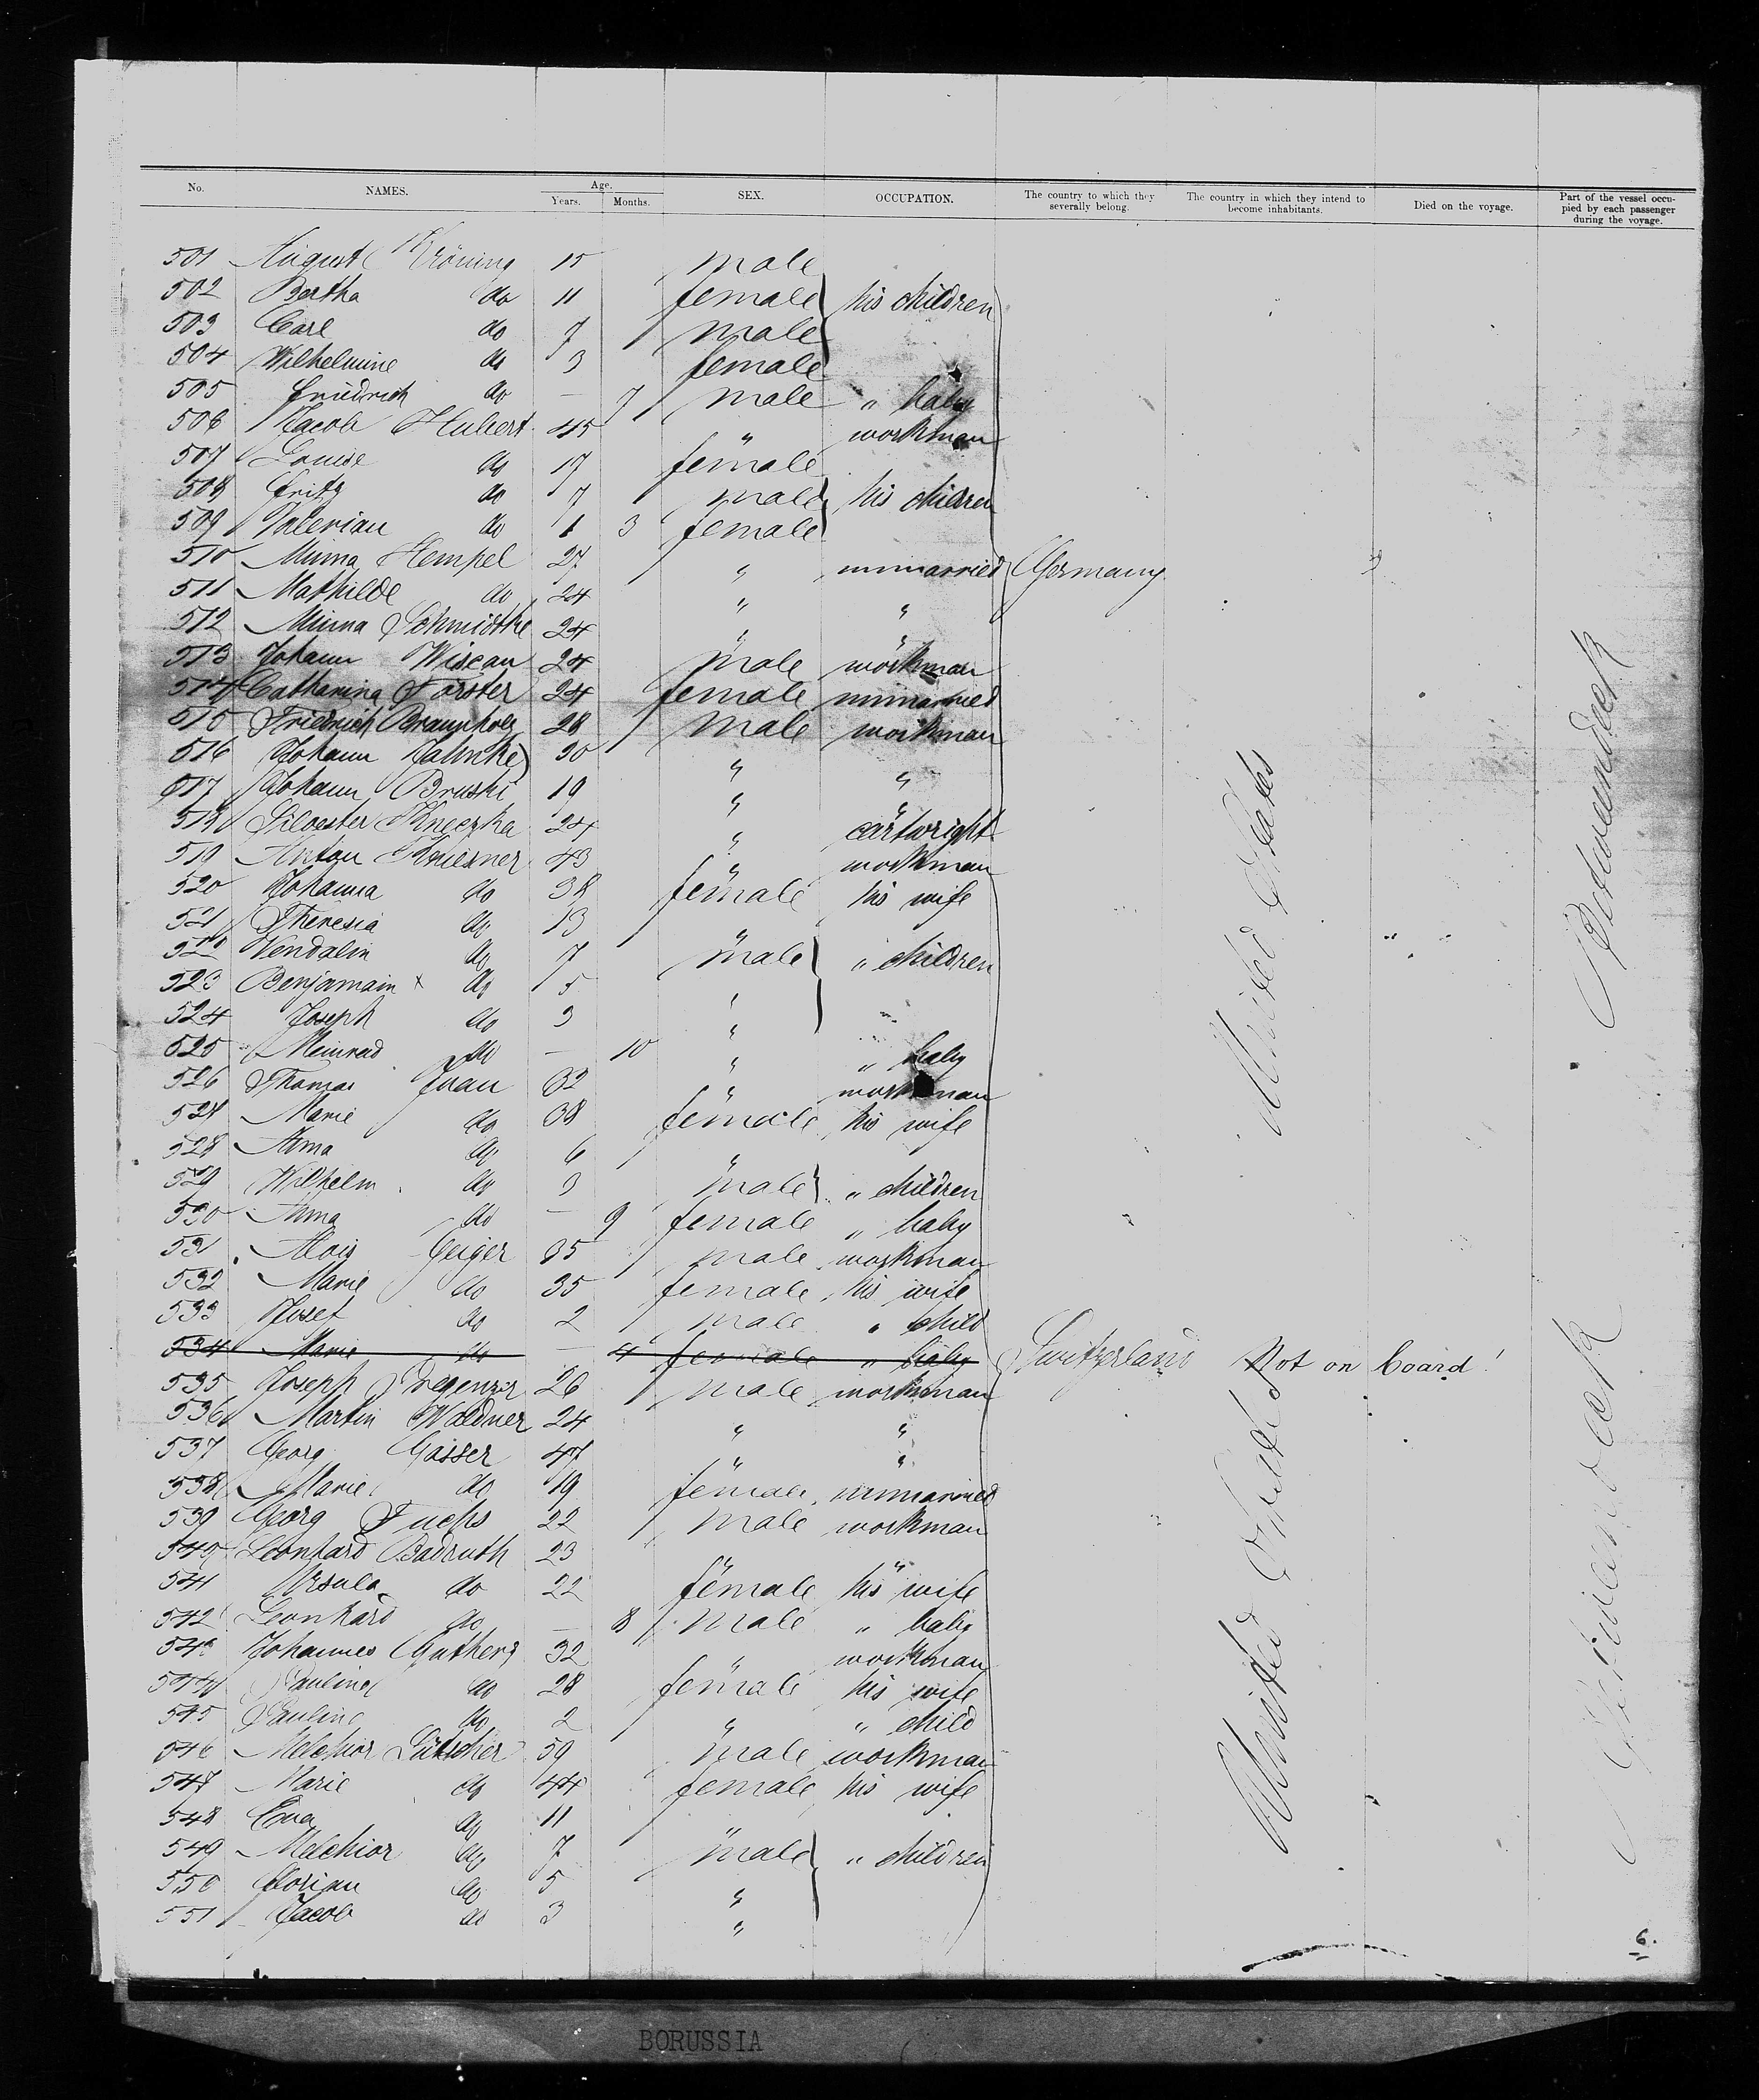 No. NAMES. Age. Years. Months. SEX. OCCUPATION. The country to which they severally belong. The country in which they intend to become inhabitants. Died on the voyage. Part of the vessel occupied by each passenger during the voyage.
501 August Kröning 15 male
502 Bertha do 11 female his children
503 Carl do 7 male
504 Wilhelmine do 3 female
505 Friedrich do — 7 male " baby
506 Jacob Hubert 45 " workman
507 Louise do 17 female
508 Fritz do 7 male his children
509 Valerian do 1 3 female
510 Minna Hempel 27 " unmarried Germany
511 Mathilde do 24 " "
512 Minna Schmidtke 24 " "
513 Johann Wiscau 24 male workman
514 Catharina Forster 24 female unmarried
515 Friedrich 28 male workman
516 Johann Jahnke 30 " "
517 Johann Bruski 19 " "
518 Silvester Kneczka 24 " cartwright
519 Anton 43 " workman
520 Johanna do 38 female his wife
521 Theresia do 13 "
522 Wendalin do 7 male " children
523 Benjamain x do 5 "
524 Joseph do 3 "
525 Meinrad do — 10 " " baby
526 Thomas Juan 32 " workman
527 Marie do 38 female his wife
528 Anna do 6 "
529 Wilhelm do 3 male " children
530 Anna do — 9 female " baby
531 Alois Geiger 35 male workman
532 Marie do 35 female his wife
533 Josef do 2 male " child
534 Marie do — 4 female " baby Switzerland Not on board!
535 Joseph 26 male workman
536 Martin Waldner 24 " "
537 Georg Gasser 47 " "
538 Marie do 19 female unmarried
539 Georg Fuchs 22 male workman
540 Leonhard Badruth 23 " "
541 Ursula do 22 female his wife
542 Leonhard do — 8 male " baby
543 Johannes 32 " workman
544 Pauline do 28 female his wife
545 Pauline do 2 " " child
546 Melchior Lütscher 59 male workman
547 Marie do 44 female his wife
548 Eva do 11 "
549 Melchior do 7 male " children
550 Florian do 5 "
551 Jacob do 3 "
United States
Zwischendeck
United States
Zwischendeck
6.
BORUSSIA